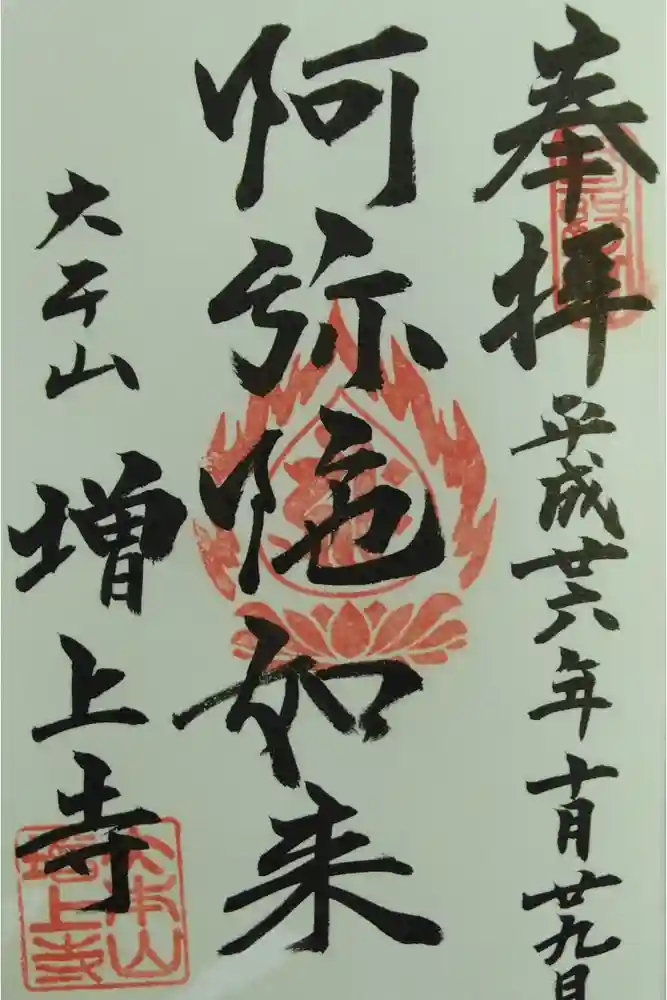 奉拝 平成廿六年十月廿九日
阿弥陁如来
大本山 増上寺
大本山
増上寺